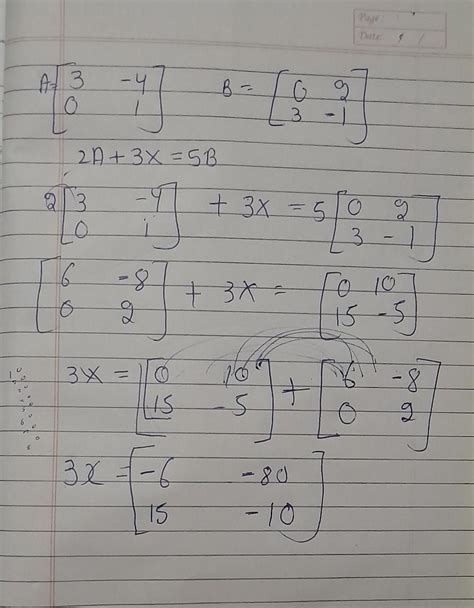 Page:
Date: / /
A= [3 -4 0 1] B = [0 2 3 -1]
2A+3X=5B
2 [3 -4 0 1] + 3X = 5 [0 2 3 -1]
[6 -8 0 2] + 3X = [0 10 15 -5]
3X = [0 10 15 -5] + [6 -8 0 2]
3X = [-6 -80 15 -10]